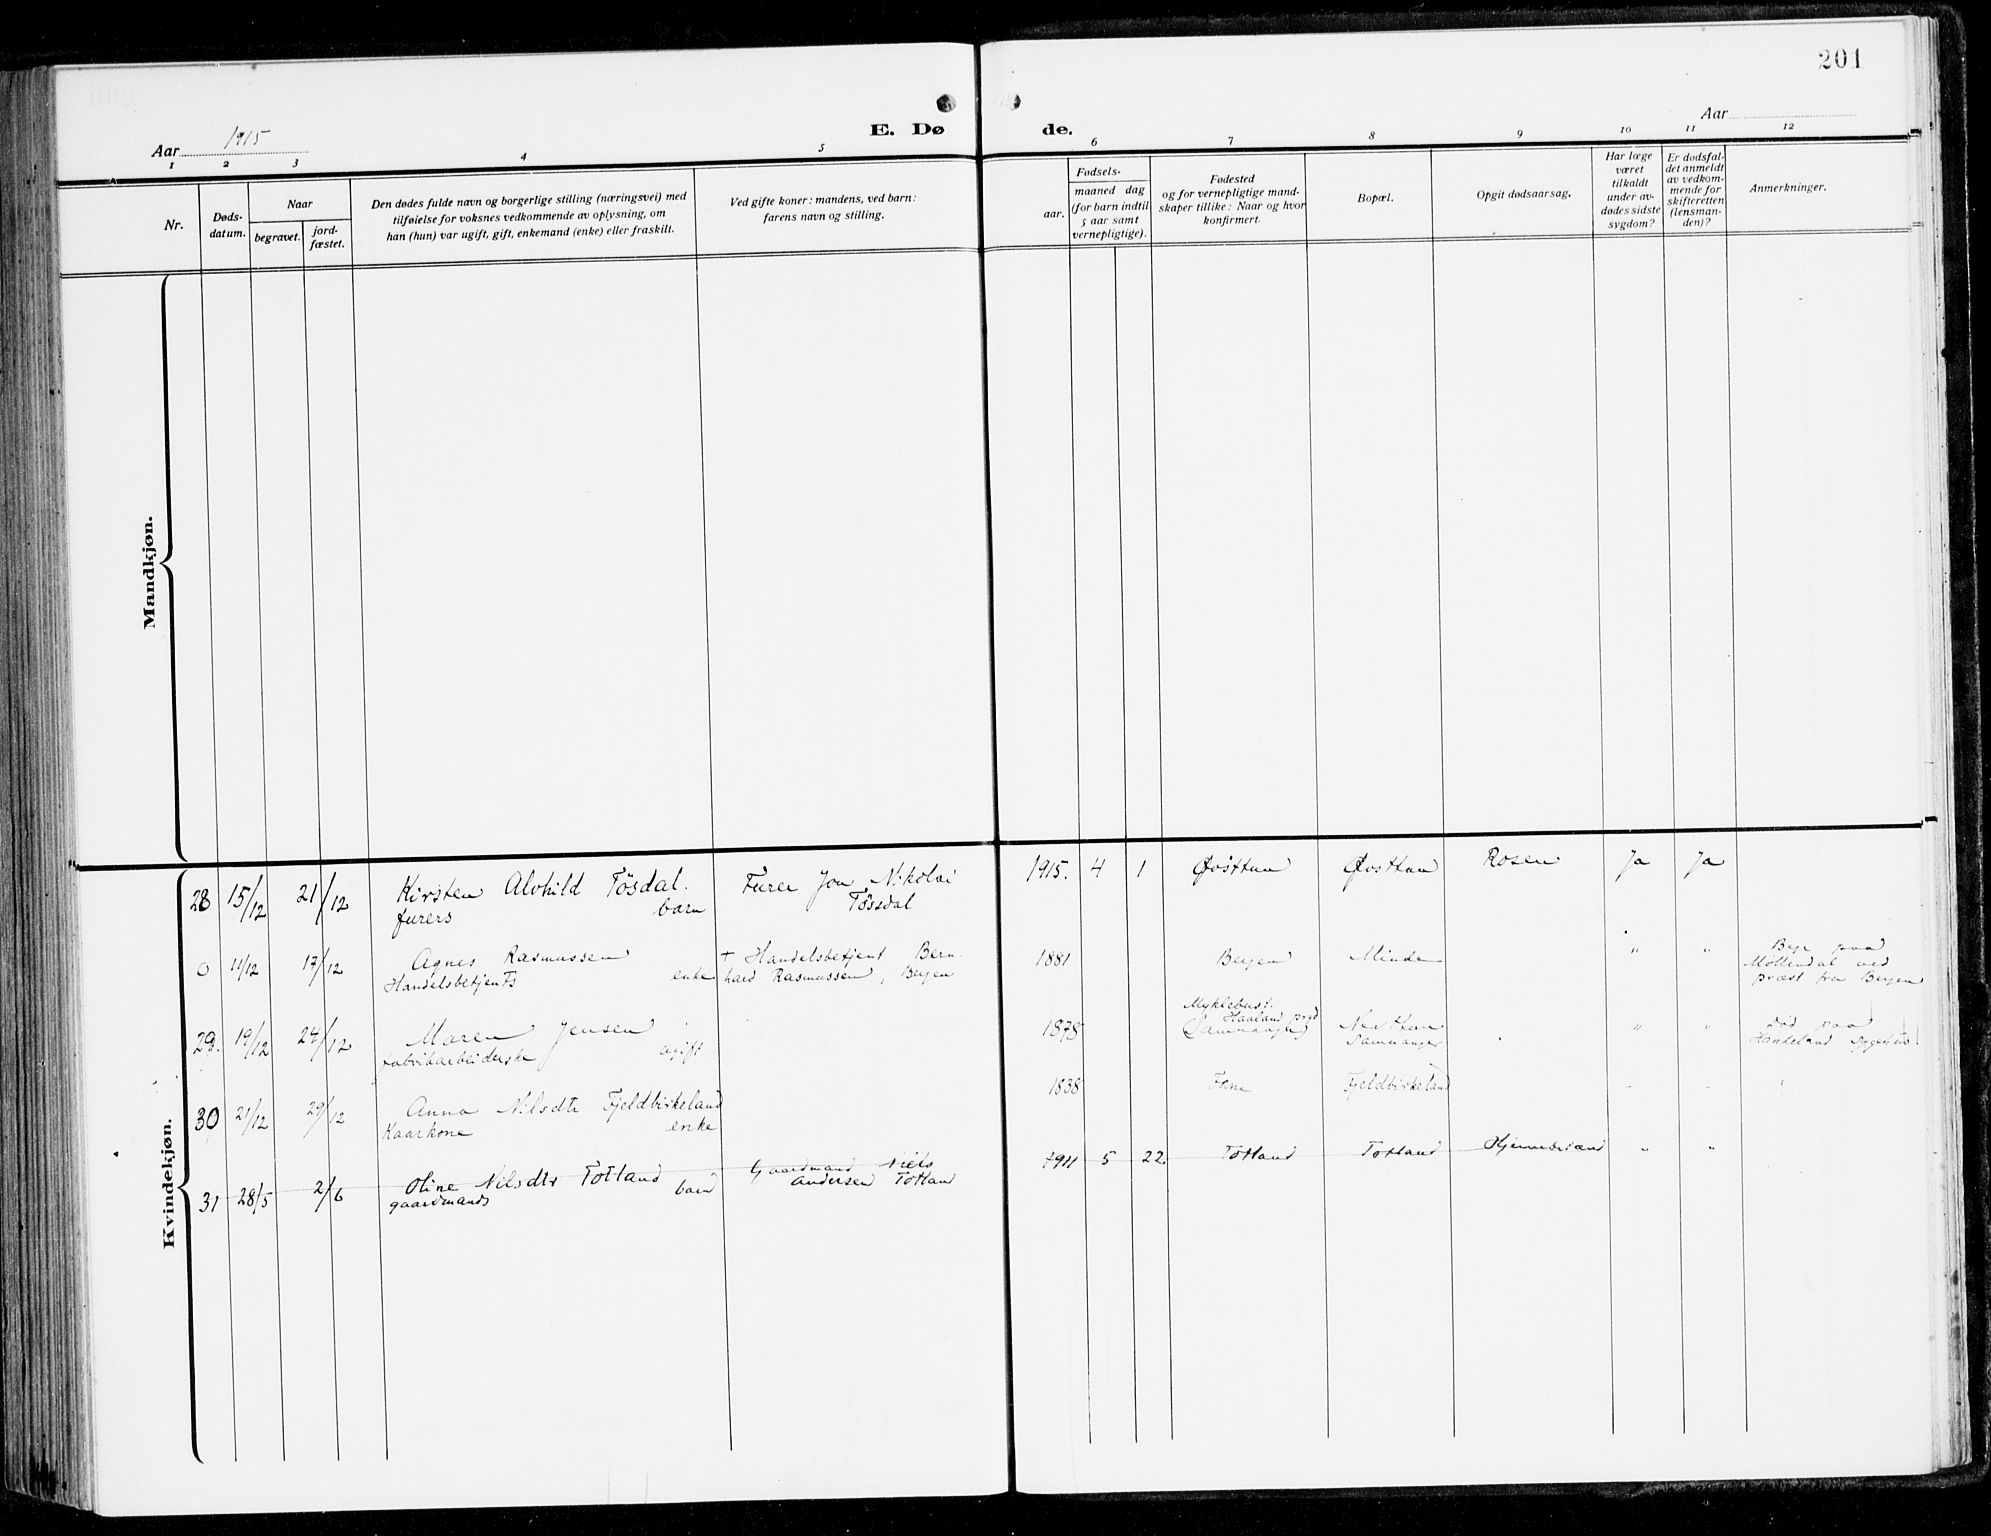 201
E. Døde.
Aar 1915
Aar
1 2 3 4 5 6 7 8 9 10 11 12
Nr.
Dødsdatum.
Naar
begravet.
jordfæstet.
Den dødes fulde navn og borgerlige stilling (næringsvei) med
tilføielse for voksnes vedkommende av oplysning, om
han (hun) var ugift, gift, enkemand (enke) eller fraskilt.
Ved gifte koner: mandens, ved barn:
farens navn og stilling.
Fødsels-
aar.
maaned dag
(for barn indtil
5 aar samt
vernepligtige).
Fødested
og for vernepligtige mand-
skaper tillike: Naar og hvor
konfirmert.
Bopæl.
Opgit dødsaarsag.
Har læge
været
tilkaldt
under av-
dødes sidste
sygdom?
Er dødsfal-
det anmeldt
av vedkom-
mende for
skifteretten
(lensman-
den)?
Anmerkninger.
Mandkjøn.
Kvindekjøn.
28 15/12 21/12 Kirsten Alvhild Tösdal. Furer Jon Nikolai 1915. 4 1 Øvsttun Øvsttun Rosen Ja Ja
furers barn Tössdal
0 11/12 17/12 Agnes Rasmussen + Handelsbetjent Bern- 1881 Bergen Minde " " Begr paa
Handelsbetjents enke hard Rasmussen, Bergen Möllendal ved
præst fra Bergen
Myklebust.
Haaland prgd
29. 19/12 24/12 Maren Jensen 1878 Samnanger " " död paa
fabrikarbeiderske ugift Samnanger Haukeland sygehus.
30 21/12 29/12 Anna Nilsdtr Fjeldbirkeland 1838 Fane Fjeldbirkeland
Kaarkone enke
31 28/5 2/6 Oline Nilsdtr Totland Gaardmand Niels 1911 5 22 Totland Totland " "
gaardmands barn Andersen Totland